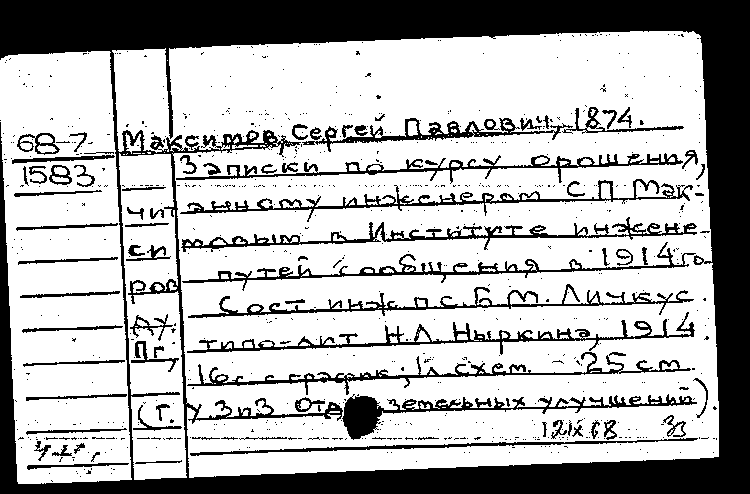 68-7 Максимов, Сергей Павлович, 1874.
1583 Записки по курсу орошения,
читанному инженером С.П. Мак-
симовым в Институте инжене-
ров путей сообщения в 1914 го-
Сост. инж. п.с. Б.М. Личкус.
Пг, типо-лит. Н.Л. Ныркина, 1914.
16 с. с график.; 1 л. схем. - 25 см
(Г.У.З и З. Отд земельных улучшений).
12 IX 68 ЗЗ